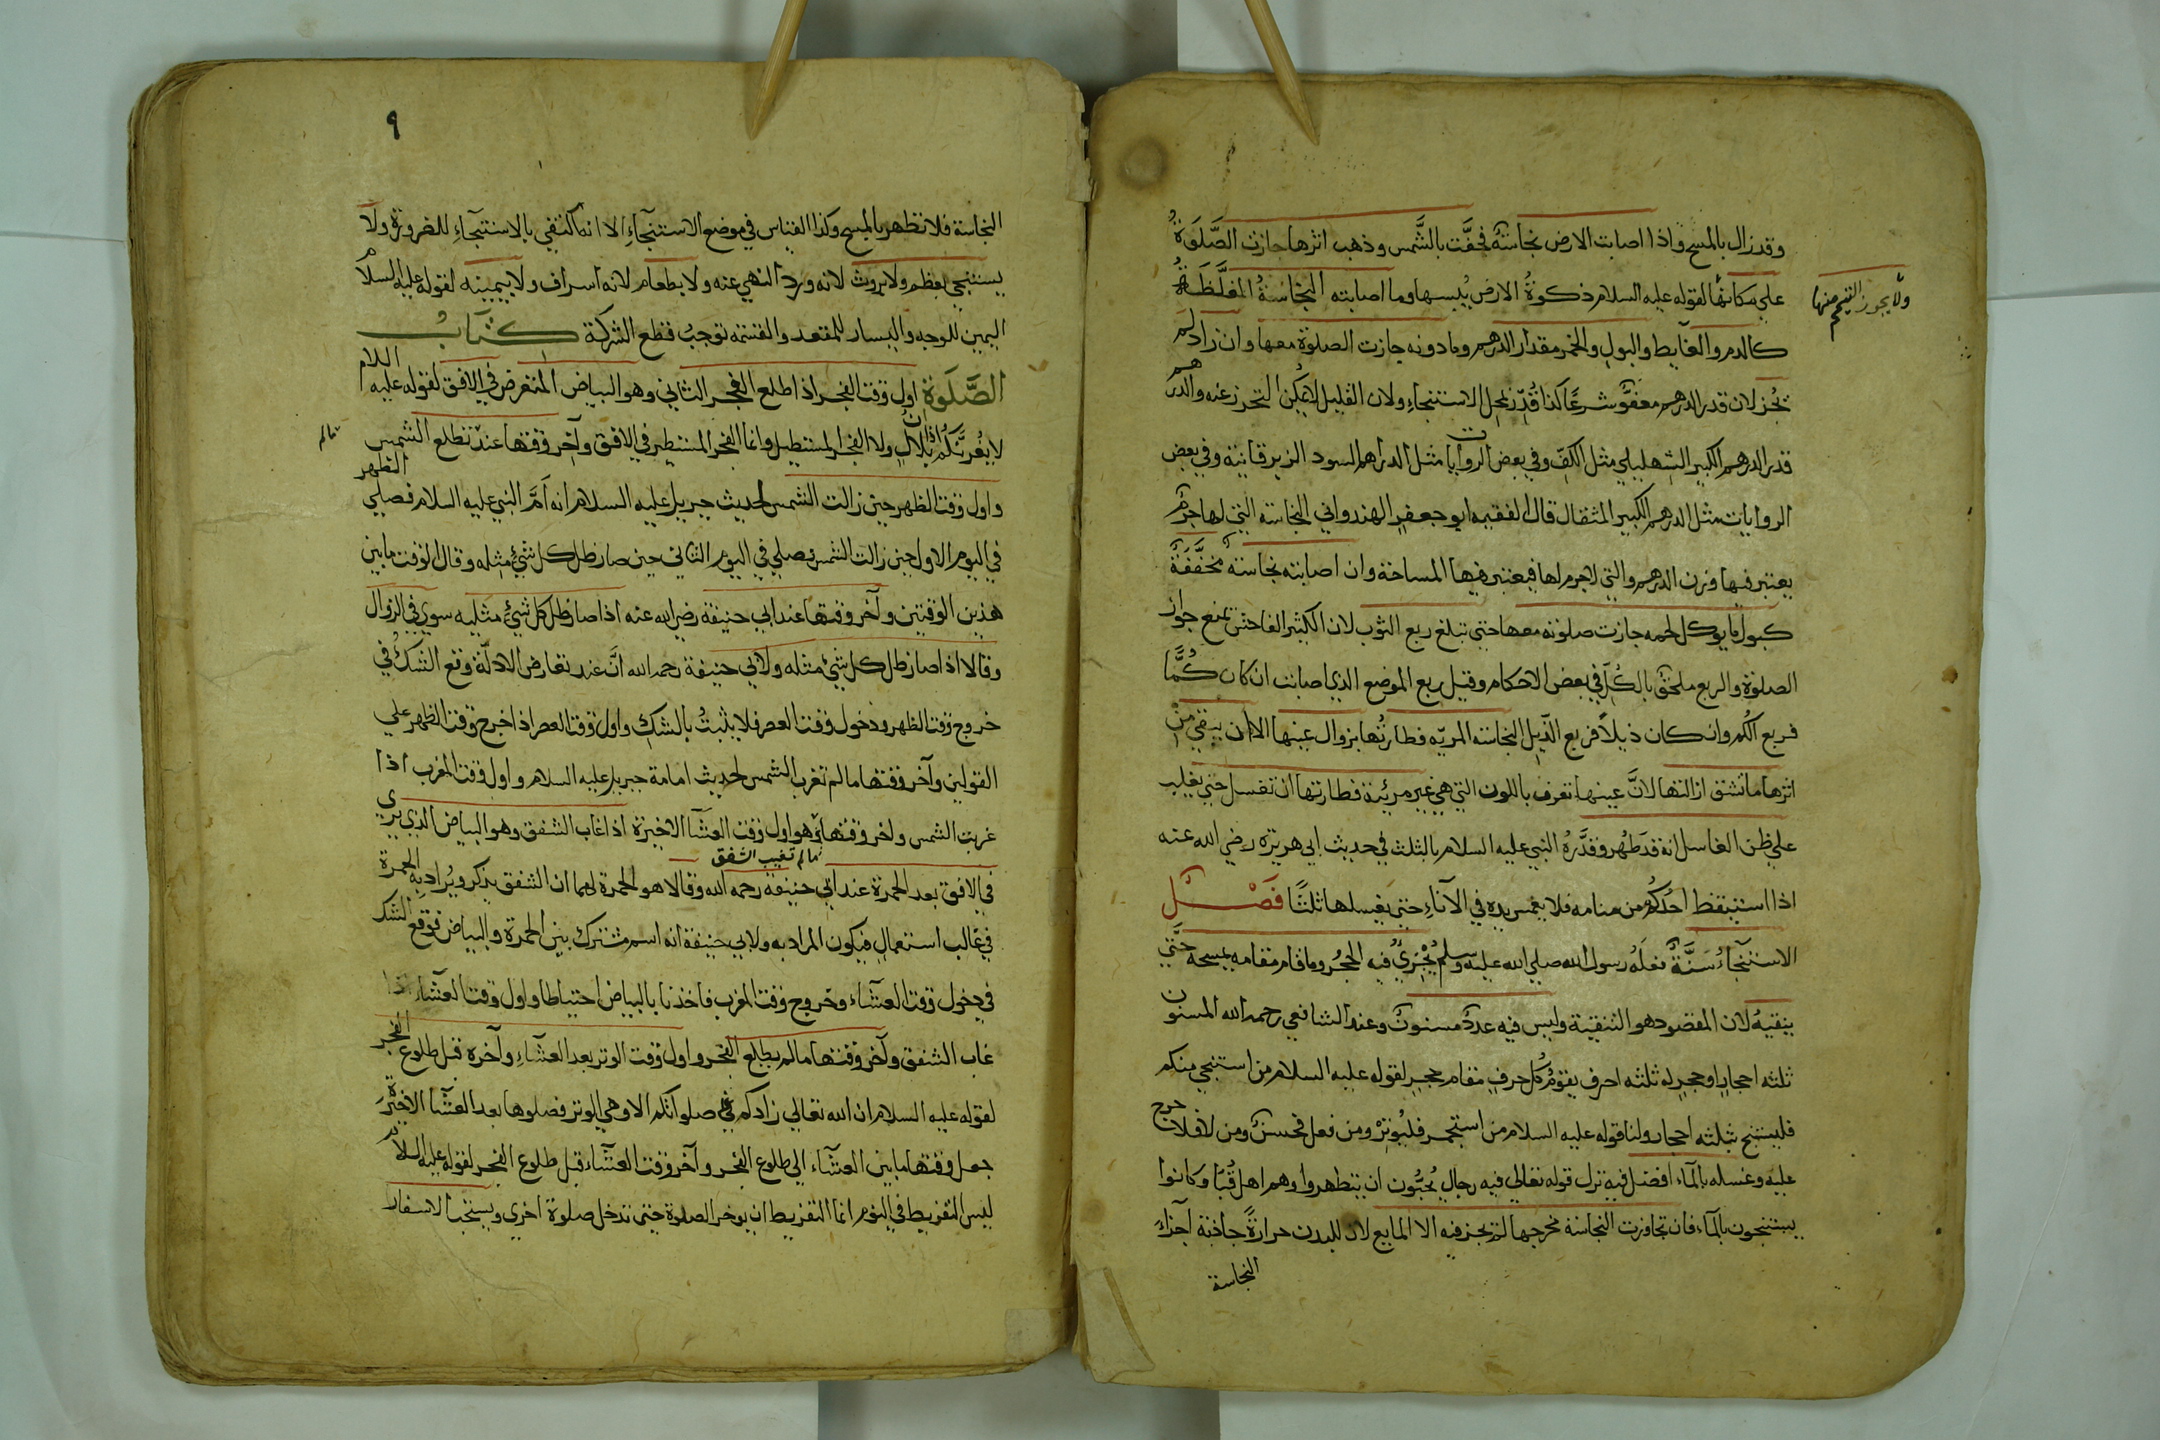 وقد زال بالمسح واذا اصابت الارض نجاسة فجفّت بالشّمس وذهب اثرها جازت الصّلوةُ
علي مكانها لقوله عليه السلام ذكوةُ الارض يُبسها وما اصابته النجاسةُ المغلّظةُ
ولا يجوز التيمم منها
كالدم والغايط والبول والخمر مقدار الدرهم وما دونه جازت الصلوة معها وان زاد لم
يَجُز لان قدر الدرهم معفوّ شرعًا كذا قُدِّر لمحل الاستنجاء ولان القليل لا يمكن التحرز عنه والدرهم
قدر الدرهم الكبير الشهليلي مثل الكفّ وفي بعض الروايات مثل الدراهم السود الزبرقانية وفي بعض
الروايات مثل الدرهم الكبير المثقال قال الفقيه ابو جعفر الهندواني النجاسة التي لها جرم
يعتبر فيها وزن الدرهم والتي لا جرم لها فيعتبر فيها المساحة وان اصابته نجاسة مخفّفةٌ
كبول ما يوكل لحمه جازت صلوته معها حتي تبلغ ربع الثوب لان الكثير الفاحش يمنع جواز
الصلوة والربع ملحق بالكُلّ في بعض الاحكام وقيل ربع الموضع الذي اصابت ان كان كُمًّا
فربع الكُم وان كان ذيلاً فربع الذّيل النجاسة المريّه فطهارتُها بزوال عينها الا ان يبقي مِن
اثرها ما تشق ازالتها لانّ عينها تعرف باللون التي هي غير مرئية فطهارتها ان تغسل حتي يغلب
علي ظن الغاسل انه قد طَهُر وقدَّرهُ النبي عليه السلام بالثلث في حديث ابي هريرة رضي الله عنه
اذا استيقظ احدُكُم من منامه فلا يغمس يده في الآناءِ حتي يغسلها ثلثًا فَصْلٌ
الاستنجاءُ سَنَّةٌ فعلَهُ رسول الله صلي الله عليه وسلم يُجْزِيُ فيه الحجرُ وما قام مقامه يمسحه حَتَّي
ينقيهُ لان المقصود هو التنقية وليس فيه عددٌ مسنونٌ وعند الشافعي رحمه الله المسنون
ثلثه احجارٍ او حجرٍ له ثلثه احرف يقومُ كل حرفٍ مقام حجرٍ لقوله عليه السلام من استنجي منكم
فليستنج بثلثه احجار ولنا قوله عليه السلام من استجمر فليُوترْ ومن فعل فحسنٌ ومن لا فلا حرج
عليه وغسله بالمآء افضل فيه نزل قوله تعالي فيه رجال يُحبُّون ان يتطهروا وهم اهل قُبا وكانوا
يستنجون بالمآء فان تجاوزت النجاسة مخرجها لم يجز فيه الا المايع لان للبدن حرارةً جاذبة اجزاء
النجاسة
٩
النجاسة فلا تطهر بالمسح وكذا القياس في موضع الاستنجآءِ الا انه اكتفي بالاستنجآءِ للضرورة ولا
يستنجي بعظم ولا بروث لانه ورد النهي عنه ولا بطعام لانه اسراف ولا بيمينه لقوله عليه السلام
اليمين للوجه واليسار للمقعد والقسمة توجبُ قطع الشركة كتَابُ
الصَّلَوةِ اول وقت الفجر اذا طلع الفجر الثاني وهو البياض المتعرض في الافق لقوله عليه السلام
لا يغُرنَّكم اذان بلالٍ ولا الفجر المستطيل وانما الفجر المستطير في الافق وآخر وقتها عند تطلع الشمس
مالم
واول وقت الظهر حين زالت الشمس لحديث جبريل عليه السلام انه اَمَّ النبي عليه السلام فصلي الظهر
في اليوم الاول حين زالت الشمس وصلي في اليوم الثاني حين صار ظل كل شيءٍ مثله وقال الوقت ما بين
هذين الوقتين وآخر وقتها عند ابي حنيفة رضي الله عنه اذا صار ظل كل شيءٍ مثليه سوي في الزوال
وقالا اذا صار ظل كل شيءٍ مثله ولابي حنيفة رحمه الله انَّ عند تعارض الادلّة وقع الشكُ في
خروج وقت الظهر ودخول وقت العصر فلا يثبتُ بالشكِ واول وقت العصر اذا خرج وقت الظهر علي
القولين وآخر وقتها مالم تغرب الشمس لحديث امامة جبريل عليه السلام واول وقت المغرب اذا
غربت الشمس واخر وقتها وهو اول وقت العشآ الاخيرة اذا غاب الشفق وهو البياض الذي يري
مالم تغيب الشفق
في الافق بعد الحمرة عند ابي حنيفة رحمه الله وقالا هو الحمرة لهما ان الشفق يذكر ويُراد به الحمرة
في غالب استعمالٍ فيكون المراد به ولابي حنيفة انه اسم مشترك بين الحمرة والبياض فوقع الشك
في دخول وقت العشآء وخروج وقت المغرب فاخذنا بالبياض احتياطا واول وقت العشآء اذا
غاب الشفق وآخر وقتها مالم يطلع الفجر واول وقت الوتر بعد العشآءِ وآخره قبل طلوع الفجر
لقوله عليه السلام ان الله تعالي زادكم في صلواتكم الا وهي الوتر فصلوها بعد العشآ الاخيرة
جعل وقتها ما بين العشآء الي طلوع الفجر وآخر وقت العشآء قبل طلوع الفجر لقوله عليه السلام
ليس التفريط في النوم انما التفريط ان يوخر الصلوة حتي تدخل صلوة اخري ويستحب الاسفار